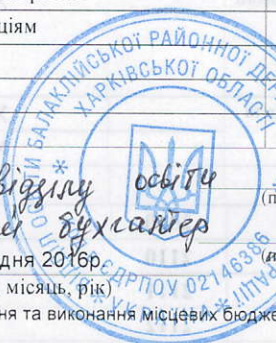 ціям
БАЛАКЛІЙСЬКОЇ РАЙОННОЇ
ХАРКІВСЬКОЇ ОБЛАСТІ
ОСВІТИ
відділу освіти
бухгалтер
дня 2016р.
місяць, рік)
ЄДРПОУ 02146386
УКРАЇНА
ня та виконання місцевих бюдже